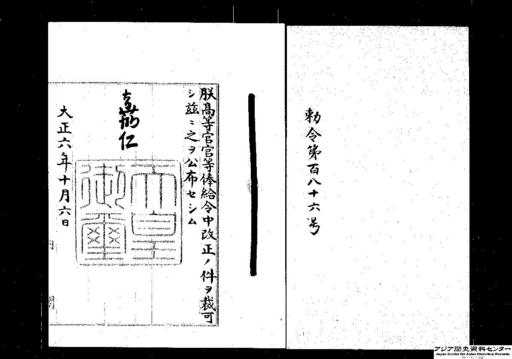 勅令第百八十六号
朕高等官官等俸給令中改正ノ件ヲ裁可
シ茲ニ之ヲ公布セシム
嘉仁
天皇御璽
大正六年十月六日
アジア歴史資料センター
Japan Center for Asian Historical Records